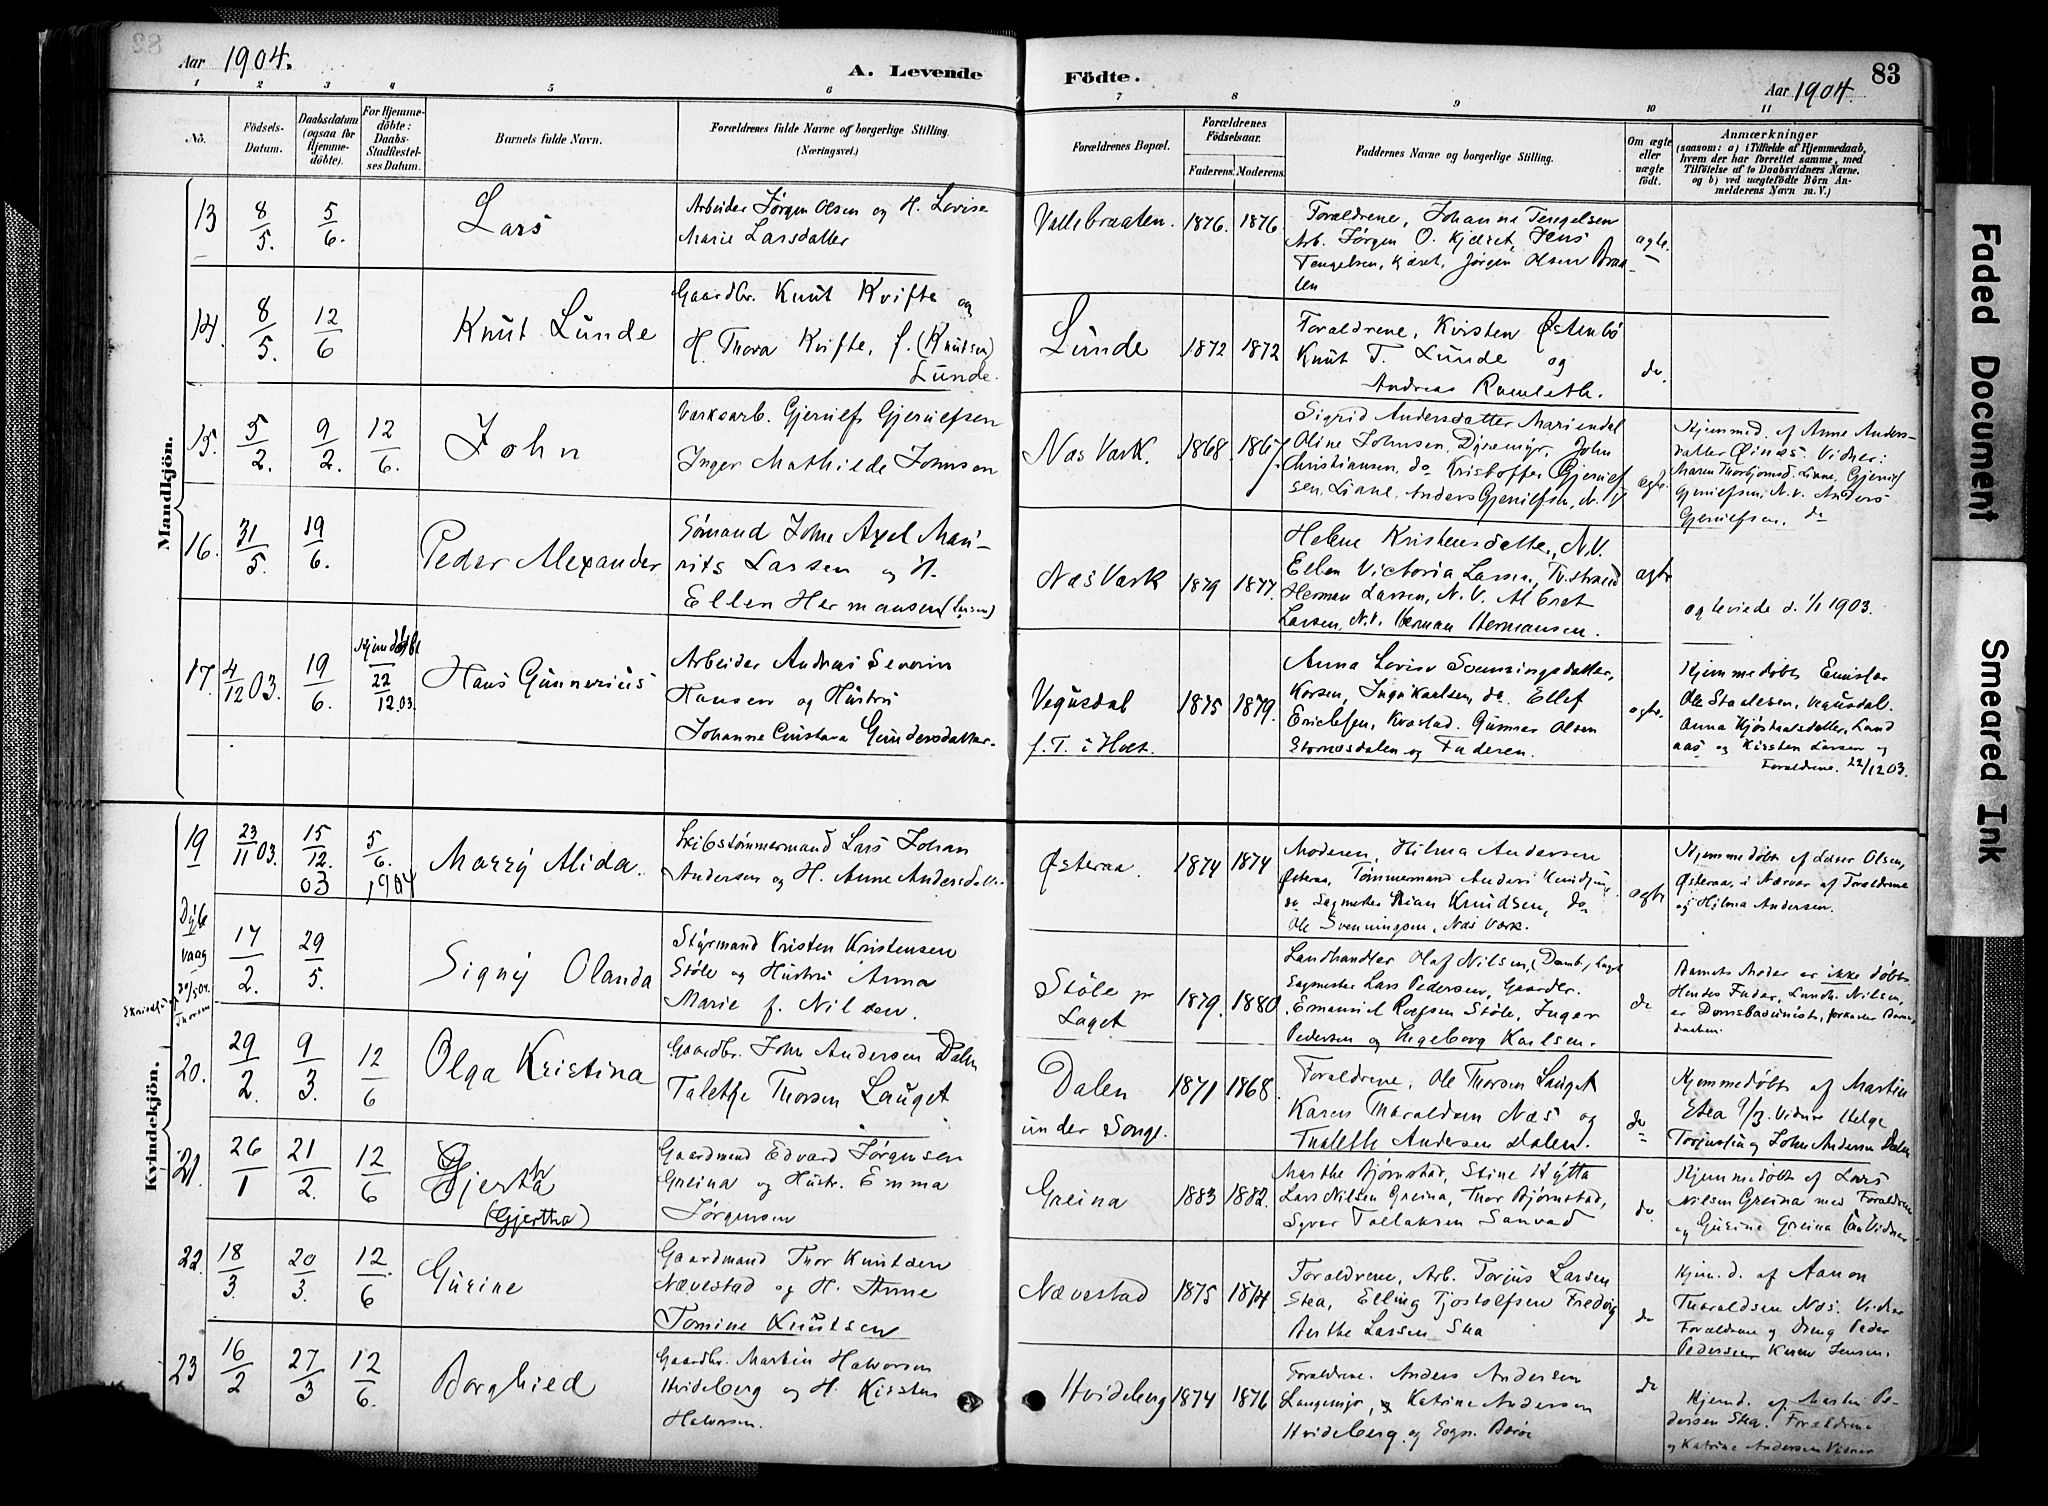 Aar 1904.
A. Levende Födte.
83
Aar 1904.
1 2 3 4 5 6 7 8 9 10 11
No.
Födsels-Datum.
Daabsdatum (ogsaa for Hjemme-döbte).
For Hjemme-döbte: Daabs-Stadfæstel-ses Datum.
Barnets fulde Navn.
Forældrenes fulde Navne og borgerlige Stilling. (Næringsvei.)
Forældrenes Bopæl.
Forældrenes Födselsaar.
Faderens. Moderens.
Faddernes Navne og borgerlige Stilling.
Om ægte eller uægte födt.
Anmærkninger
(saasom: a) i Tilfælde af Hjemmedaab,
hvem der har forrettet samme, med
Tilföielse af to Daabsvidners Navne.
og b) ved uægtefödte Börn An-
melderens Navn m. V.)
Mandkjön.
13 8/5. 5/6. Lars
Arbeider Jørgen Olsen og H. Lovise
Marie Larsdatter
Vallebraaten. 1876. 1876.
Forældrene, Johanne Tengelsen
Arb. Jørgen O. Kjelret, Jens
Tengelsen, Jørgen Olsen Braa-
ten
ægte.
14. 8/5. 12/6 Knut Lunde
Gaardbr. Knut Kvifte og
H. Thora Kvifte, f. (Knutsen)
Lunde.
Lunde 1872 1872
Forældrene, Kirsten Østenbö
Knut T. Lunde og
Andreas Ramleth.
do.
15. 5/2. 9/2. 12/6. John
Værksarb. Gjerulf Gjerulfsen
Inger Mathilde Johnsen
Næs Værk. 1868. 1867.
Sigrid Andersdatter Mariendal
Oline Johnsen, Dyremyr, John
Christiansen, do Kristoffer Gjerulf
sen, Liane, Anders Gjerulfsen, N. V
ægte.
Hjemmed. af Anne Anders-
datter Øinæs. Vidner:
Maren Thorbjørnsd. Liane, Gjerulf
Gjerulfsen, N. V. Anders
Gjerulfsen, do
16. 31/5. 19/6. Peder Alexander
Sømand John Axel Mau-
rits Larsen og H.
Ellen Hermansen (Larsen)
Næs Værk 1879 1877.
Helene Kristensdatter, N.V.
Ellen Victoria Larsen, Tvetstrand
Herman Larsen, N. V. Albret
Larsen, N.V. Herman Hermansen.
ægte
ogleviede d. 1/1 1903.
17. 4/12 03. 19/6. Hjemdøbt 22/12.03. Hans Gunnerius
Arbeider Andreas Severin
Hansen og Hustru
Johanne Gustava Gundersdatter.
Vegusdal 1875 1879.
f. T. i Holt.
Anna Lovise Svenningsdatter,
Korsen, Inga Karlsen, do. Ellef
Ericksen, Kvastad. Gunnar Olsen
Stornæsdalen og Faderen.
ægte.
Hjemmedøbt
Ole Staalesen, Vegusdal.
Anna Lund
aas og Kirsten Larsen og
Forældrene. 22/12 03.
Kvindekjön.
19 23/11 03. 15/12. 03 5/6. 1904 Marry Alida.
Skibstømmermand Lars Johan
Andersen og H. Anne Andersdatter
Østeraa. 1874 1874
Moderen, Hilma Andersen
Østeraa, Tømmermand Anders Knudsen
do Sagmester Knudsen, do
Ole Svenningsen, Næs Værk.
ægte
Hjemmedøbt af Olsen,
Østeraa, i Nærvær af Forældrene
og Hilma Andersen.
Dybvaag 30/5 04.
17/2. 29/5. Signy Olanda
Styrmand Kristen Kristensen
Støle og Hustru Anna
Marie f. Nilsen.
Støle pr Laget 1879. 1880
Landhandler Olaf Nilsen, Laget
Sagmester Lars Pedersen, Gaardbr.
Emanuel Støle, Inger
Pedersen og Ingeborg Karlsen.
do
Barnets Moder er ikke døbt.
Hendes Fader, Landh. Nilsen,
er forkaster Barne-
daaben.
20. 29/2. 9/3. 12/6 Olga Kristina
Gaardbr. John Andersen Dalen
Talette Thorsen Lauget
Dalen under Songe. 1871 1868.
Forældrene, Ole Thorsen Lauget
Karen Tharaldsen Næs og
Thaleth Andersen Dalen.
do
Hjemmedøbt af Martin
Stea 9/3. Vidner Helge
Torjusen og John Andersen Dalen
21. 26/1 21/2. 12/6 Gjerta
(Gjertha)
Gaardmand Edvard Jørgensen
Greina og Hustr. Emma
Jørgensen
Greina 1883 1882.
Marthe Bjørnstad, Stine Hytta
Lars Nilsen Greina, Thor Bjørnstad,
Syver Tallaksen Sanvad
do
Hjemmedøbt af Lars
Nilsen Greina med Forældrene
og Gurine Greina som Vidner
22. 18/3. 20/3. 12/6 Gurine
Gaardmand Thor Knutsen
Nævestad og H. Anne
Tomine Knutsen
Nævestad 1875 1874
Forældrene, Arb. Torjus Larsen
Stea, Elling Tjostolfsen Fredvig
Berthe Larsen Stea
do
Hjem.d. af Aanon
Tharaldsen Næs. Vidner
Forældrene og Peder
Pedersen Karen Jensen.
23 16/2 27/3 12/6. Borghild
Gaardbr. Martin Halvorsen
Hvideberg og H. Kirsten
Halvorsen.
Hvideberg 1874 1876
Forældrene. Anders Andersen
Langmyr, Katrine Andersen
Hvideberg og Børø
do
Hjemd. af Martin Pe-
dersen Stea. Forældrene
og Katrine Andersen Vidner
Faded Document
Smeared Ink